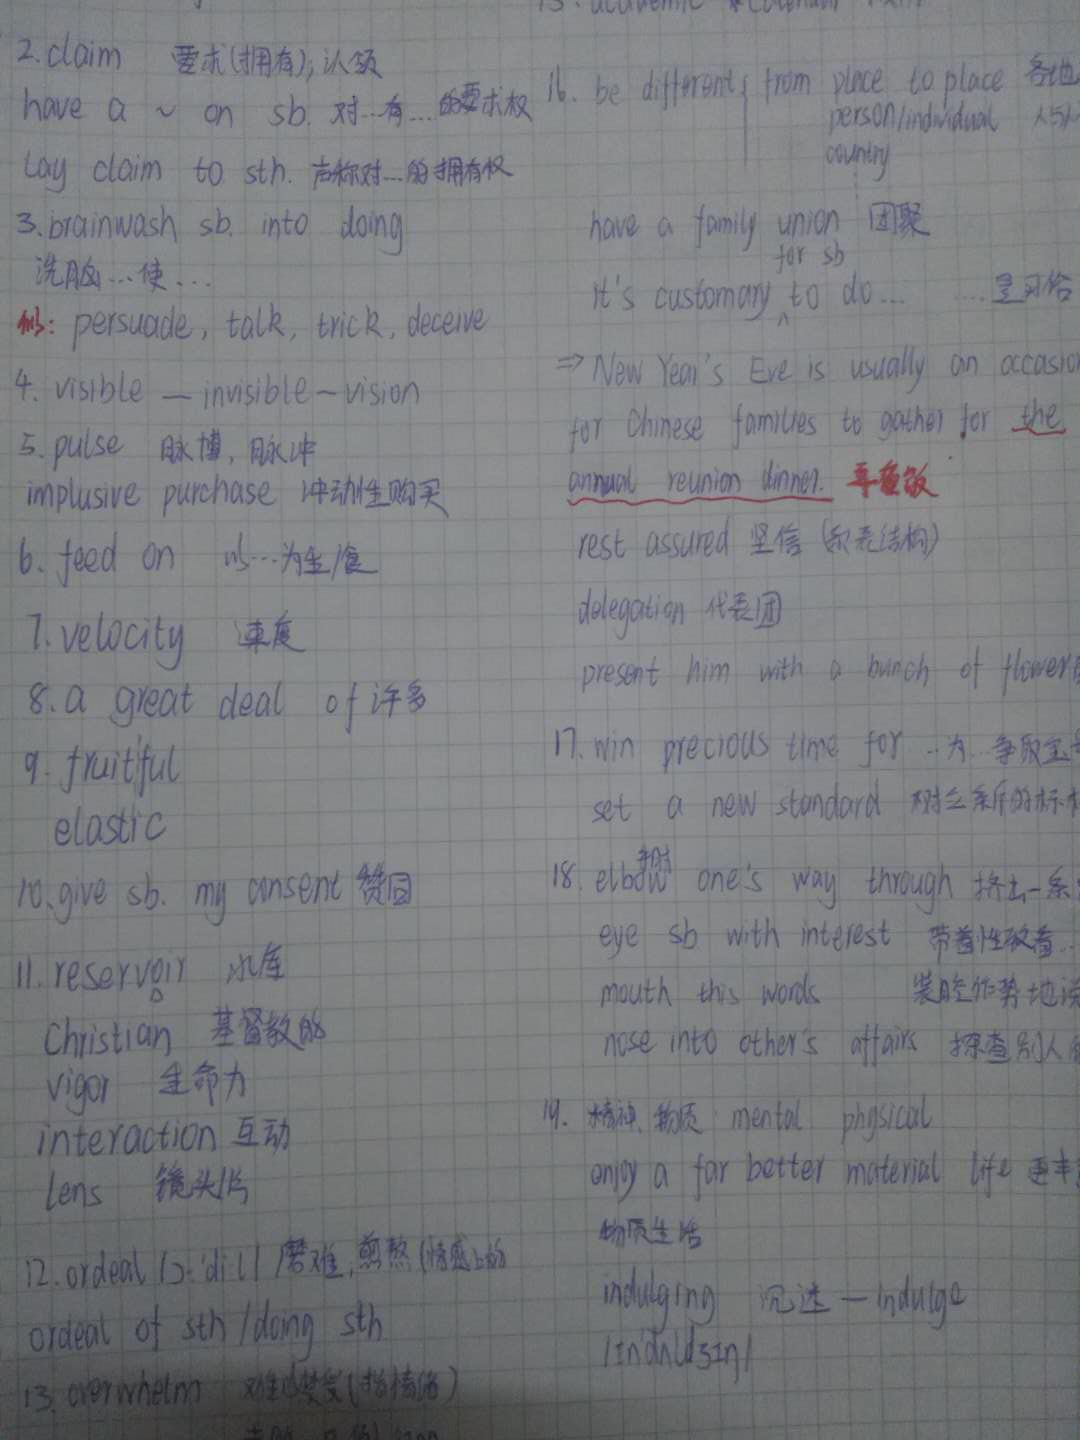 2. claim 要求(拥有);认领
have a ~ on sb. 对…有…的要求权
lay claim to sth. 声称对…的拥有权
3. brainwash sb. into doing
洗脑…使…
persuade, talk, trick, deceive
4. visible — invisible — vision
5. pulse 脉搏,脉冲
implusive purchase 冲动性购买
6. feed on 以…为生/食
7. velocity 速度
8. a great deal of 许多
9. fruitful
elastic
10. give sb. my consent 赞同
11. reservoir 水库
Christian 基督教的
vigor 生命力
interaction 互动
lens 镜头/片
12. ordeal /ɔ:'di:l/ 磨难,煎熬(情感上的
ordeal of sth/doing sth
13. overwhelm
15. academic calendar
16. be different from place to place 各地
person/individual
country
have a family union 团聚
for sb
it's customary ^ to do… …是习俗
⇒ New Year's Eve is usually an occasion
for Chinese families to gather for the
annual reunion dinner. 年夜饭
rest assured 坚信 (系表结构)
delegation 代表团
present him with a bunch of flowers
17. win precious time for …为…争取宝贵
set a new standard 树立新的标准
手肘
18. elbow one's way through 挤出一条
eye sb with interest 带着性致看…
mouth this words 装腔作势地说
nose into other's affairs 探查别人的
19. 精神、物质 mental physical
enjoy a far better material life 更丰
物质生活
indulging 沉迷 — indulge
/ɪndʌldʒɪŋ/